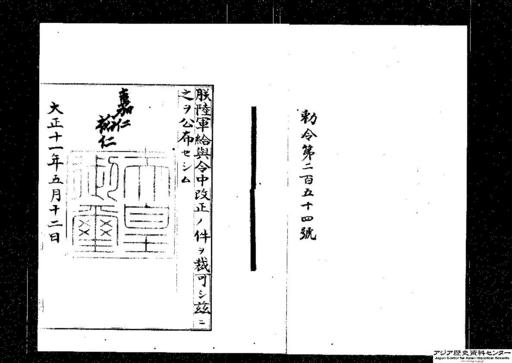 勅令第二百五十四號
朕陸軍給與令中改正ノ件ヲ裁可シ茲ニ
之ヲ公布セシム
嘉仁
裕仁
天皇
御璽
大正十一年五月十二日
アジア歴史資料センター
Japan Center for Asian Historical Records